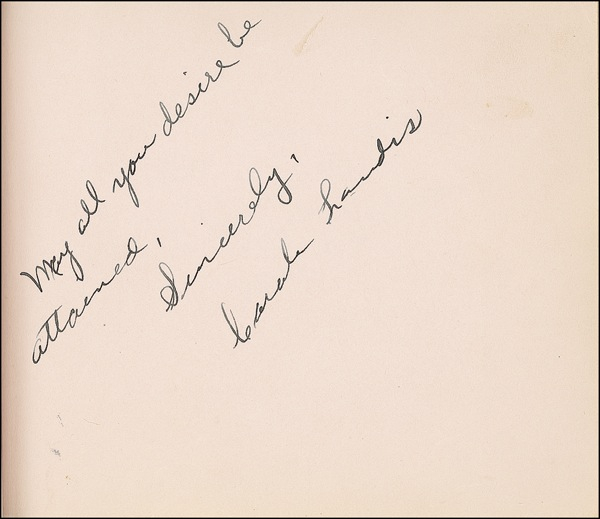 May all you desire be
attained,
Sincerely,
Carole Landis